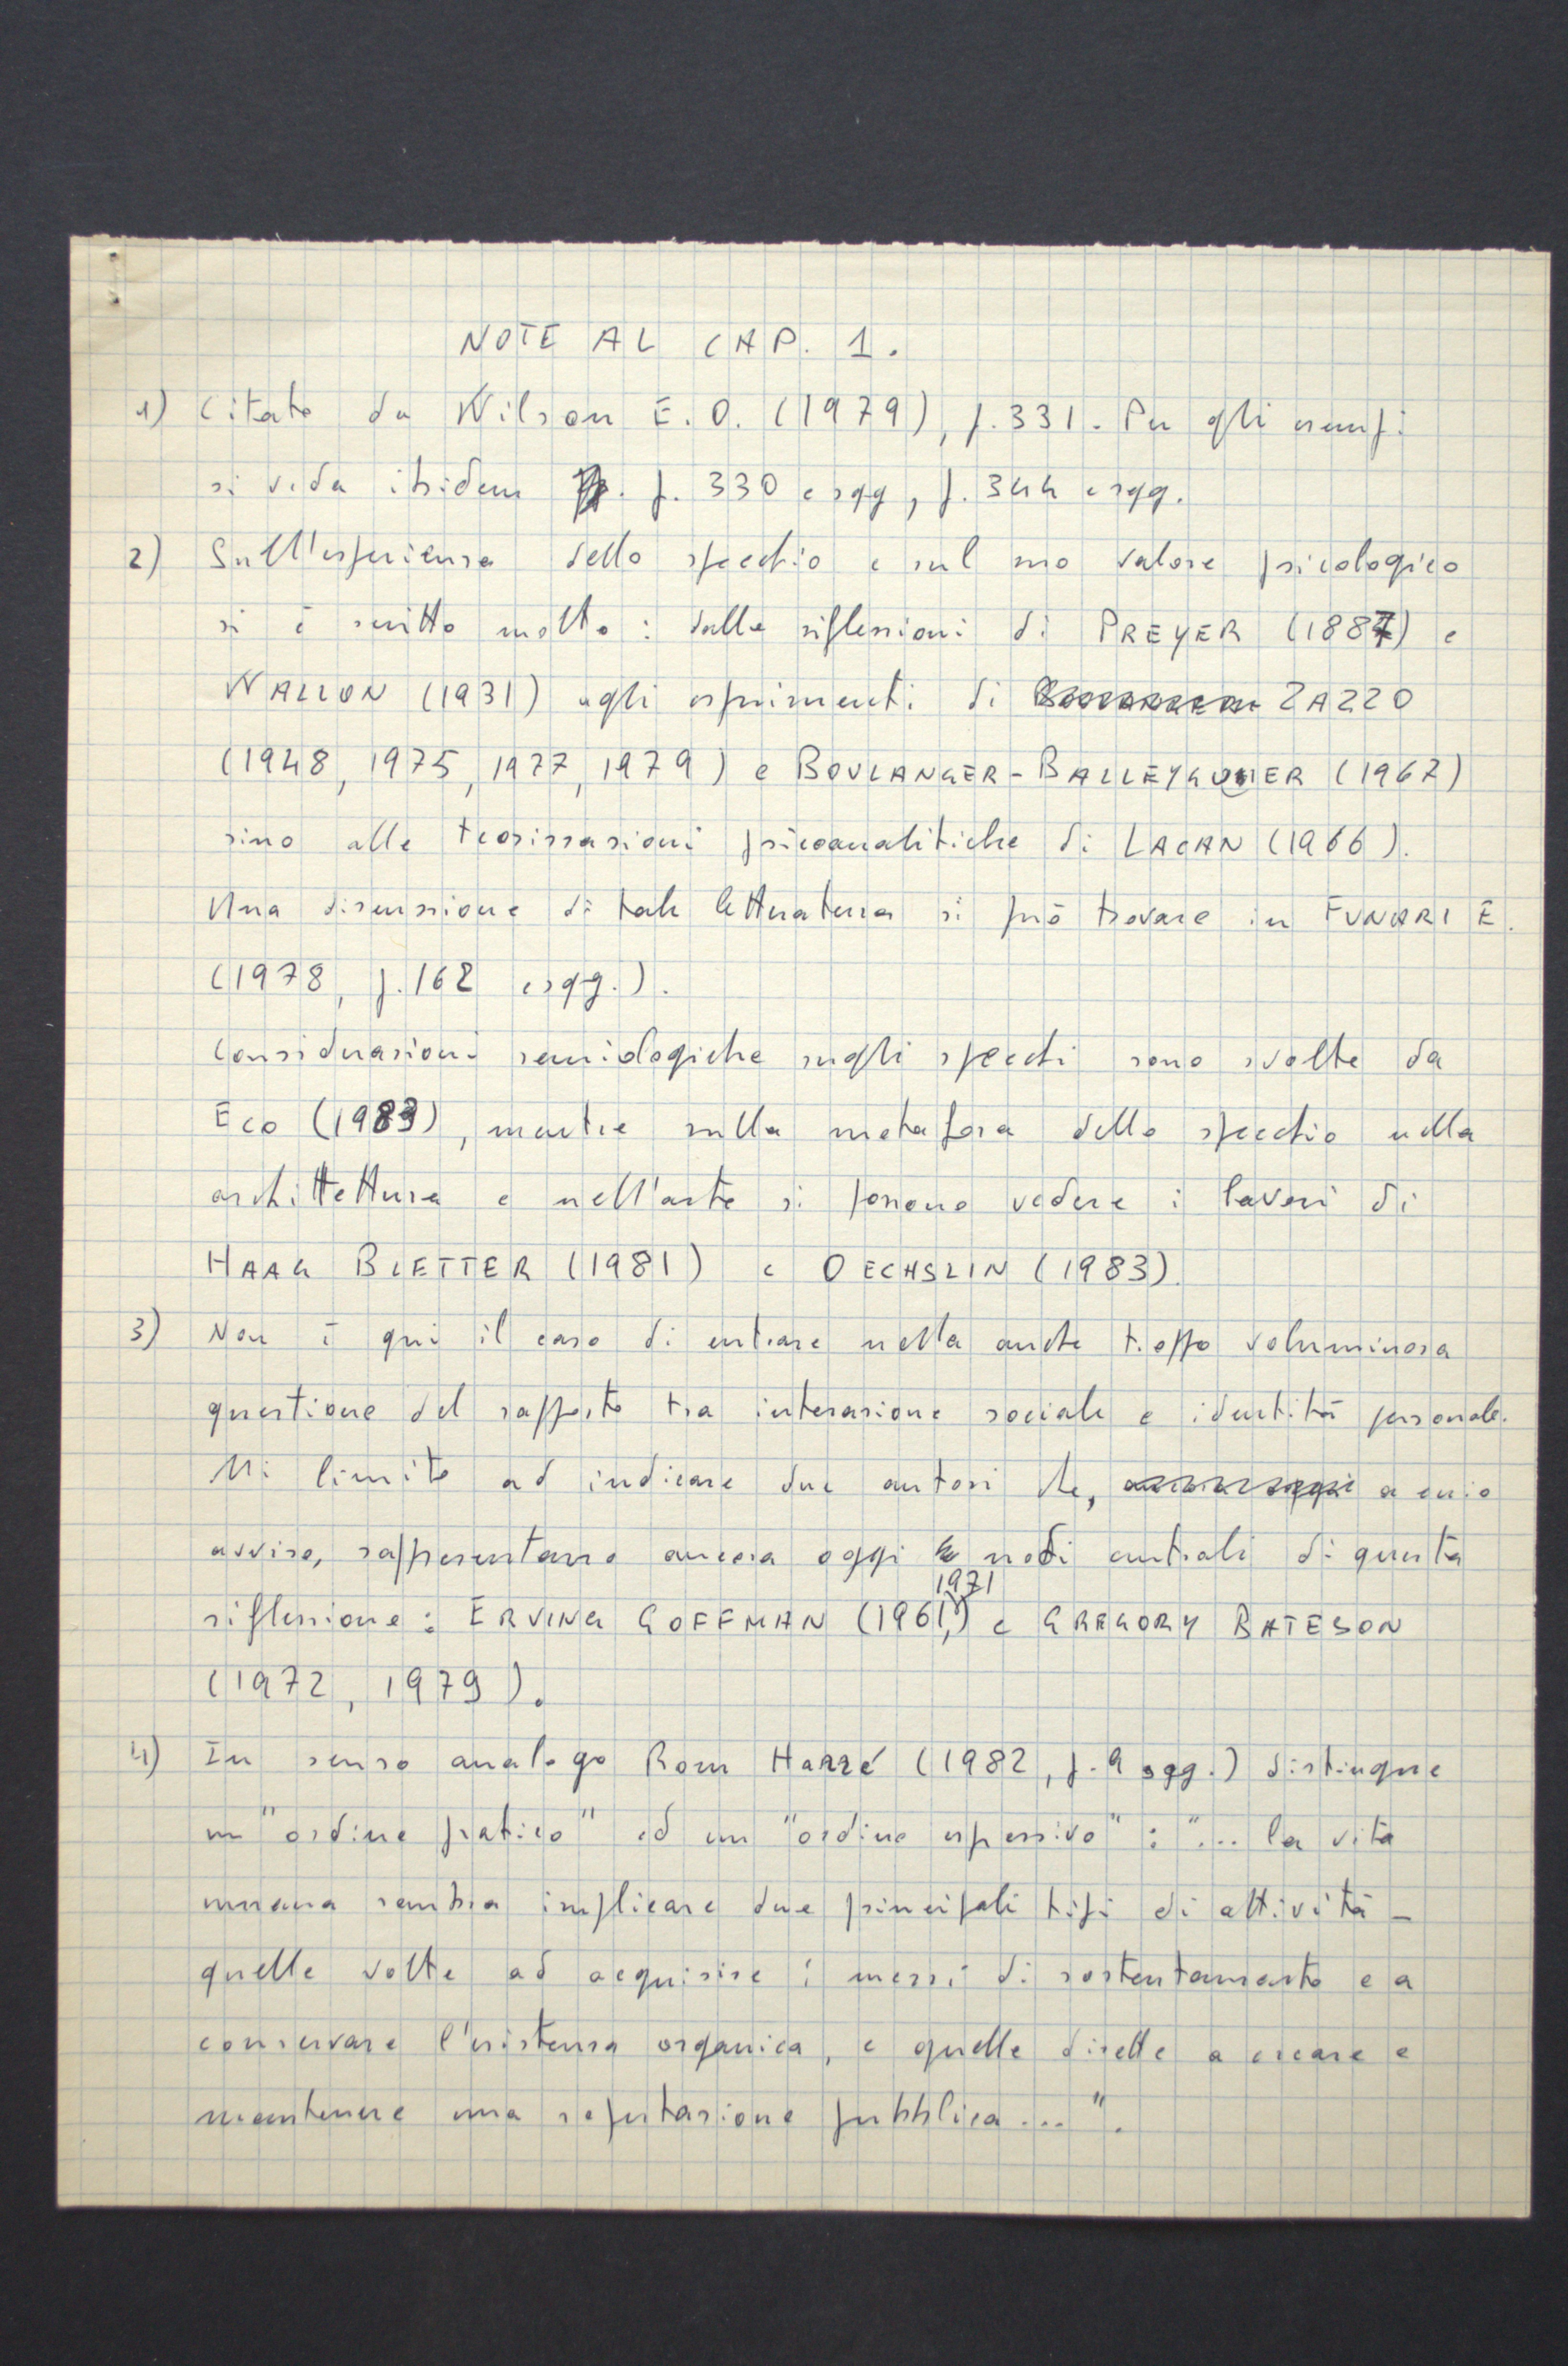 NOTE AL CAP. 1.
1) Citato da Wilson E.O. (1979), p. 331. Per gli esempi
si veda ibidem p. 330 e sgg, p. 344 e sgg.
2) Sull'esperienza dello specchio e sul suo valore psicologico
si è scritto molto: dalle riflessioni di PREYER (1887) e
WALLON (1931) agli esperimenti di ZAZZO
(1948, 1975, 1977, 1979) e BOULANGER-BALLEYGUIER (1967)
sino alle teorizzazioni psicoanalitiche di LACAN (1966).
Una discussione di tale letteratura si può trovare in FUNARI E.
(1978, p. 162 e sgg.).
Considerazioni semiologiche sugli specchi sono svolte da
ECO (1983), mentre sulla metafora dello specchio nella
architettura e nell'arte si possono vedere i lavori di
HAAG BLETTER (1981) e OECHSLIN (1983).
3) Non è qui il caso di entrare nella anche troppo voluminosa
questione del rapporto tra interazione sociale e identità personale.
Mi limito ad indicare due autori che, a mio
avviso, rappresentano ancora oggi nodi centrali di questa
riflessione: ERVING GOFFMAN (1961, 1971) e GREGORY BATESON
(1972, 1979).
4) In senso analogo Rom Harré (1982, p. 9 sgg.) distingue
un "ordine pratico" ed un "ordine espressivo": "... la vita
umana sembra implicare due principali tipi di attività -
quelle volte ad acquisire i mezzi di sostentamento e a
conservare l'esistenza organica, e quelle dirette a creare e
mantenere una reputazione pubblica...".